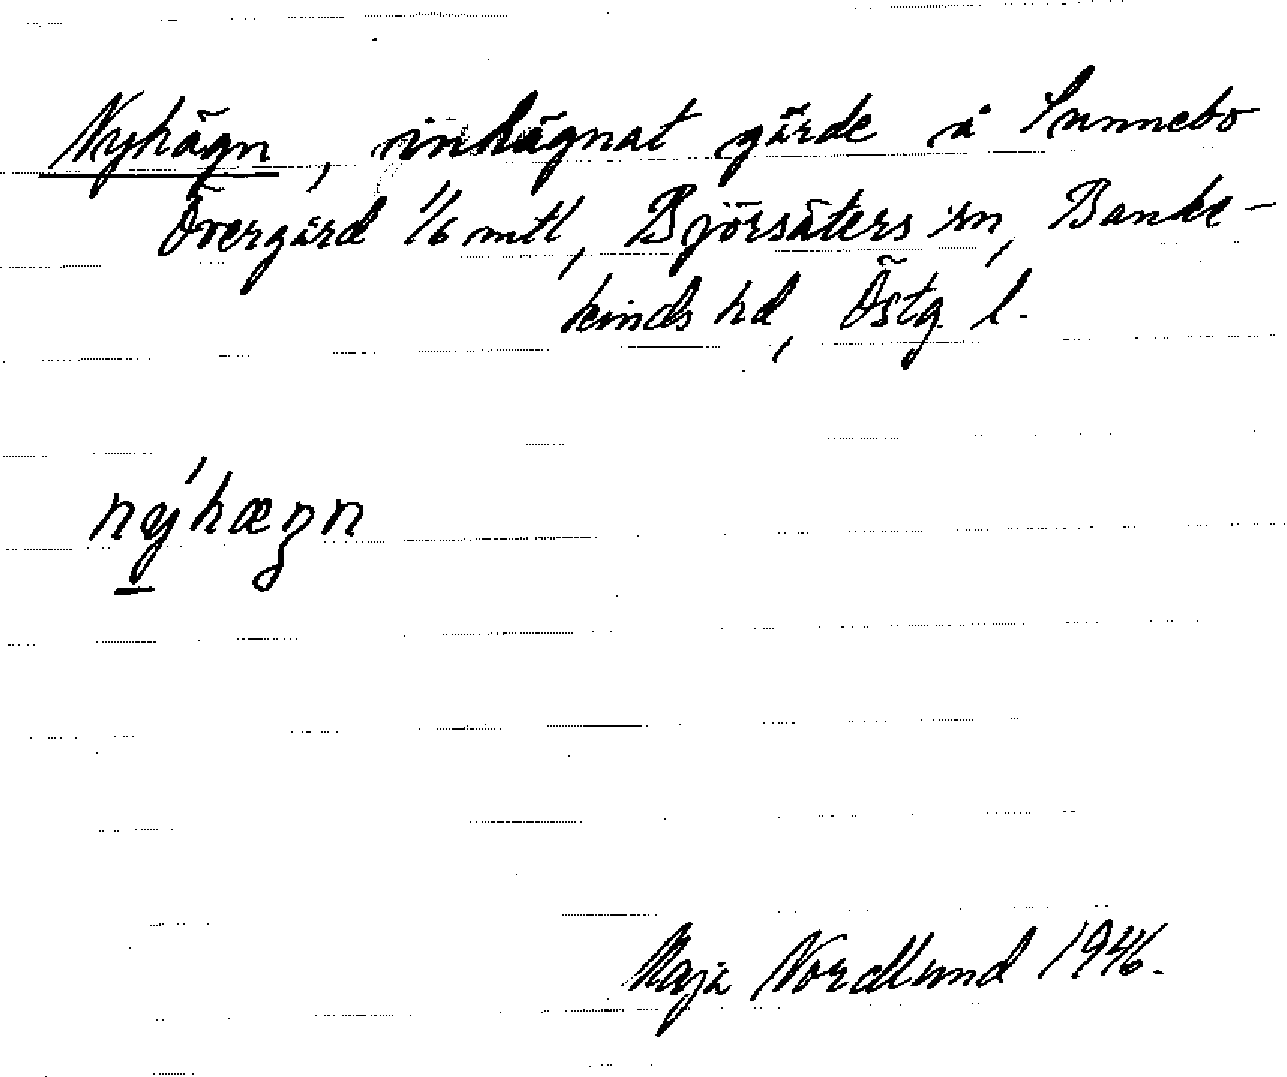 Nyhägn, inhägnat gärde å Sunnebo
Övergård 1/6 mtl, Björsäters sn, Banke-
kinds hd, Östg. l.
nýhægn
Maja Nordlund 1946.